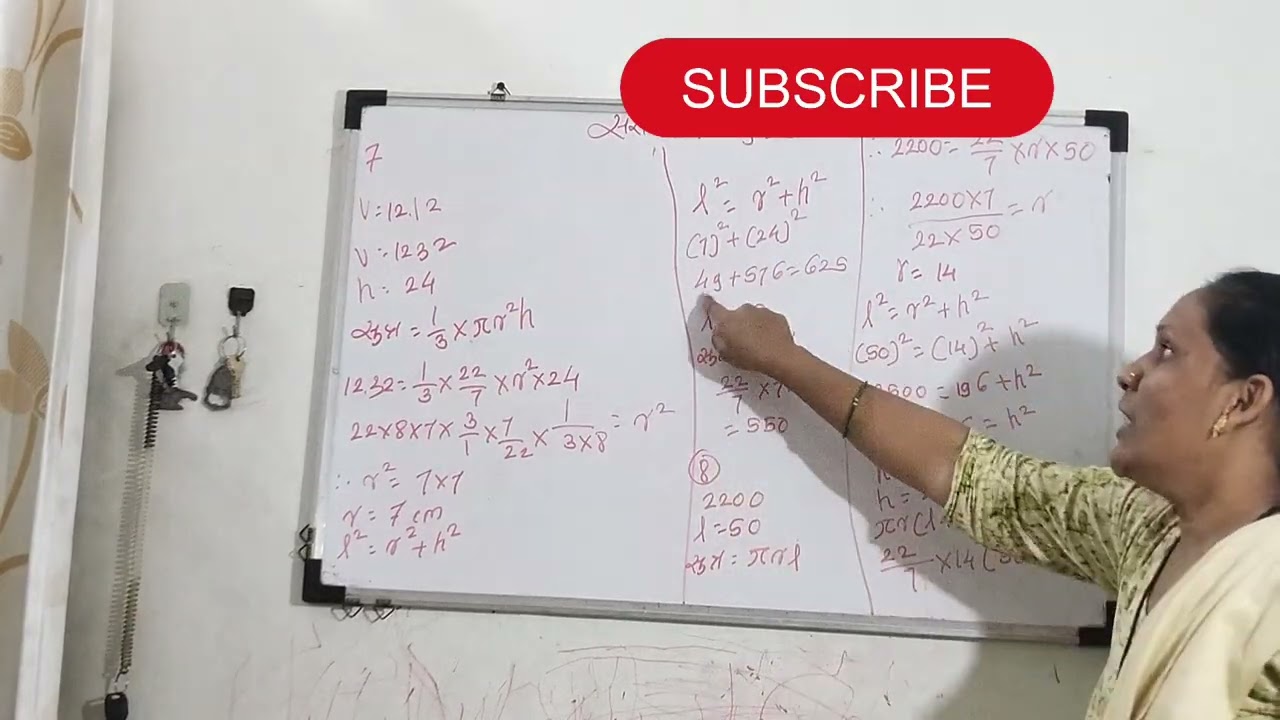 SUBSCRIBE
7
V=12.12
V=1232
h= 24
सूत्र = 1/3 × πr²h
12.32 = 1/3 × 22/7 × r² × 24
22×8×7× 3/1 × 7/22 × 1/3×8 = r²
∴ r² = 7×7
r = 7 cm
l² = r² + h²
l² = r² + h²
(7)² + (24)²
49 + 576 = 625
22/7 × 7
= 550
8
2200
l = 50
सूत्र = πrl
∴ 2200 = 22/7 × r × 50
∴ 2200×7/22×50 = r
r = 14
l² = r² + h²
(50)² = (14)² + h²
2500 = 196 + h²
= h²
h =
πr(l
22/7 × 14 (